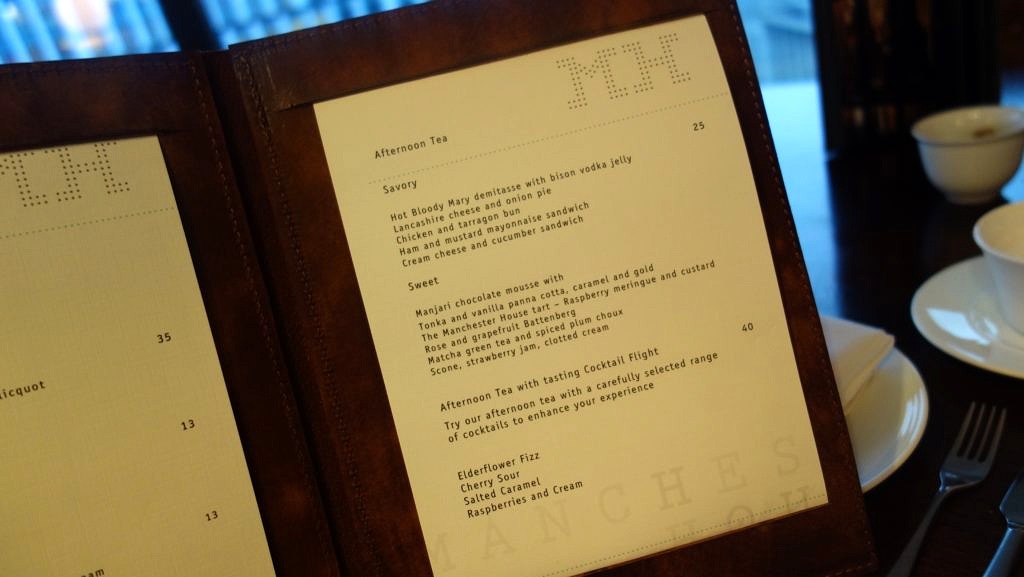 MH
35
licquot
13
13
am
MH
Afternoon Tea 25
Savory
Hot Bloody Mary demitasse with bison vodka jelly
Lancashire cheese and onion pie
Chicken and tarragon bun
Ham and mustard mayonnaise sandwich
Cream cheese and cucumber sandwich
Sweet
Manjari chocolate mousse with
Tonka and vanilla panna cotta, caramel and gold
The Manchester House tart - Raspberry meringue and custard
Rose and grapefruit Battenberg
Matcha green tea and spiced plum choux
Scone, strawberry jam, clotted cream
Afternoon Tea with tasting Cocktail Flight 40
Try our afternoon tea with a carefully selected range
of cocktails to enhance your experience
Elderflower Fizz
Cherry Sour
Salted Caramel
Raspberries and Cream
MANCHES
HOU